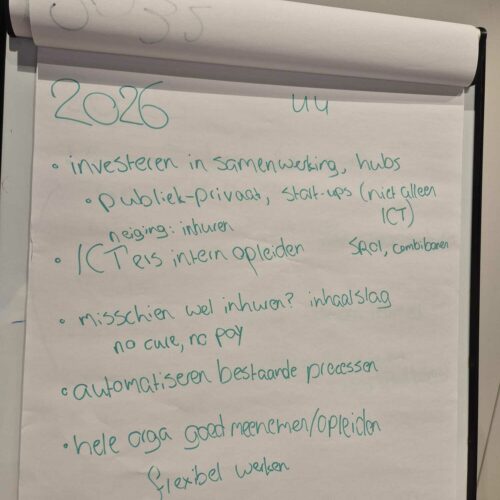 2026
uu
• investeren in samenwerking, hubs
• publiek-privaat, start-ups (niet alleen ICT)
neiging: inhuren
• ICT'ers intern opleiden
SROI, combibanen
• misschien wel inhuren? inhaalslag
no cure, no pay
• automatiseren bestaande processen
• hele orga goed meenemen/opleiden
flexibel werken